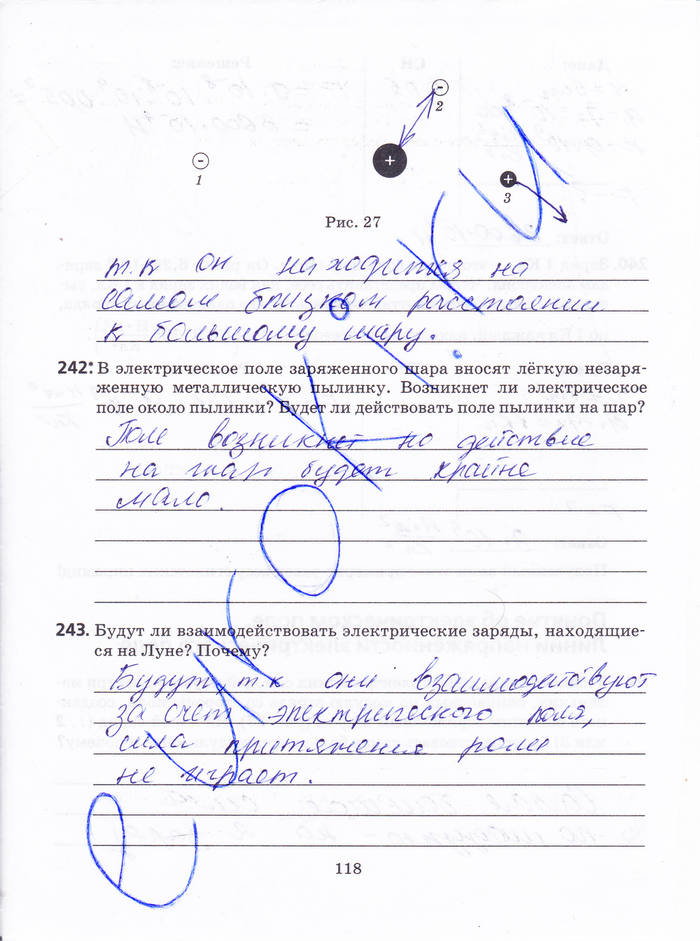 -
2
+
-
1
+
3
Рис. 27
т.к он находится на
самом близком расстоянии
к большому шару.
242. В электрическое поле заряженного шара вносят лёгкую незаря-
женную металлическую пылинку. Возникнет ли электрическое
поле около пылинки? Будет ли действовать поле пылинки на шар?
Поле возникнет но действие
на шар будет крайне
мало.
243. Будут ли взаимодействовать электрические заряды, находящие-
ся на Луне? Почему?
Будут, т.к они взаимодействуют
за счет электрического поля,
сила притяжения роли
не играет.
118